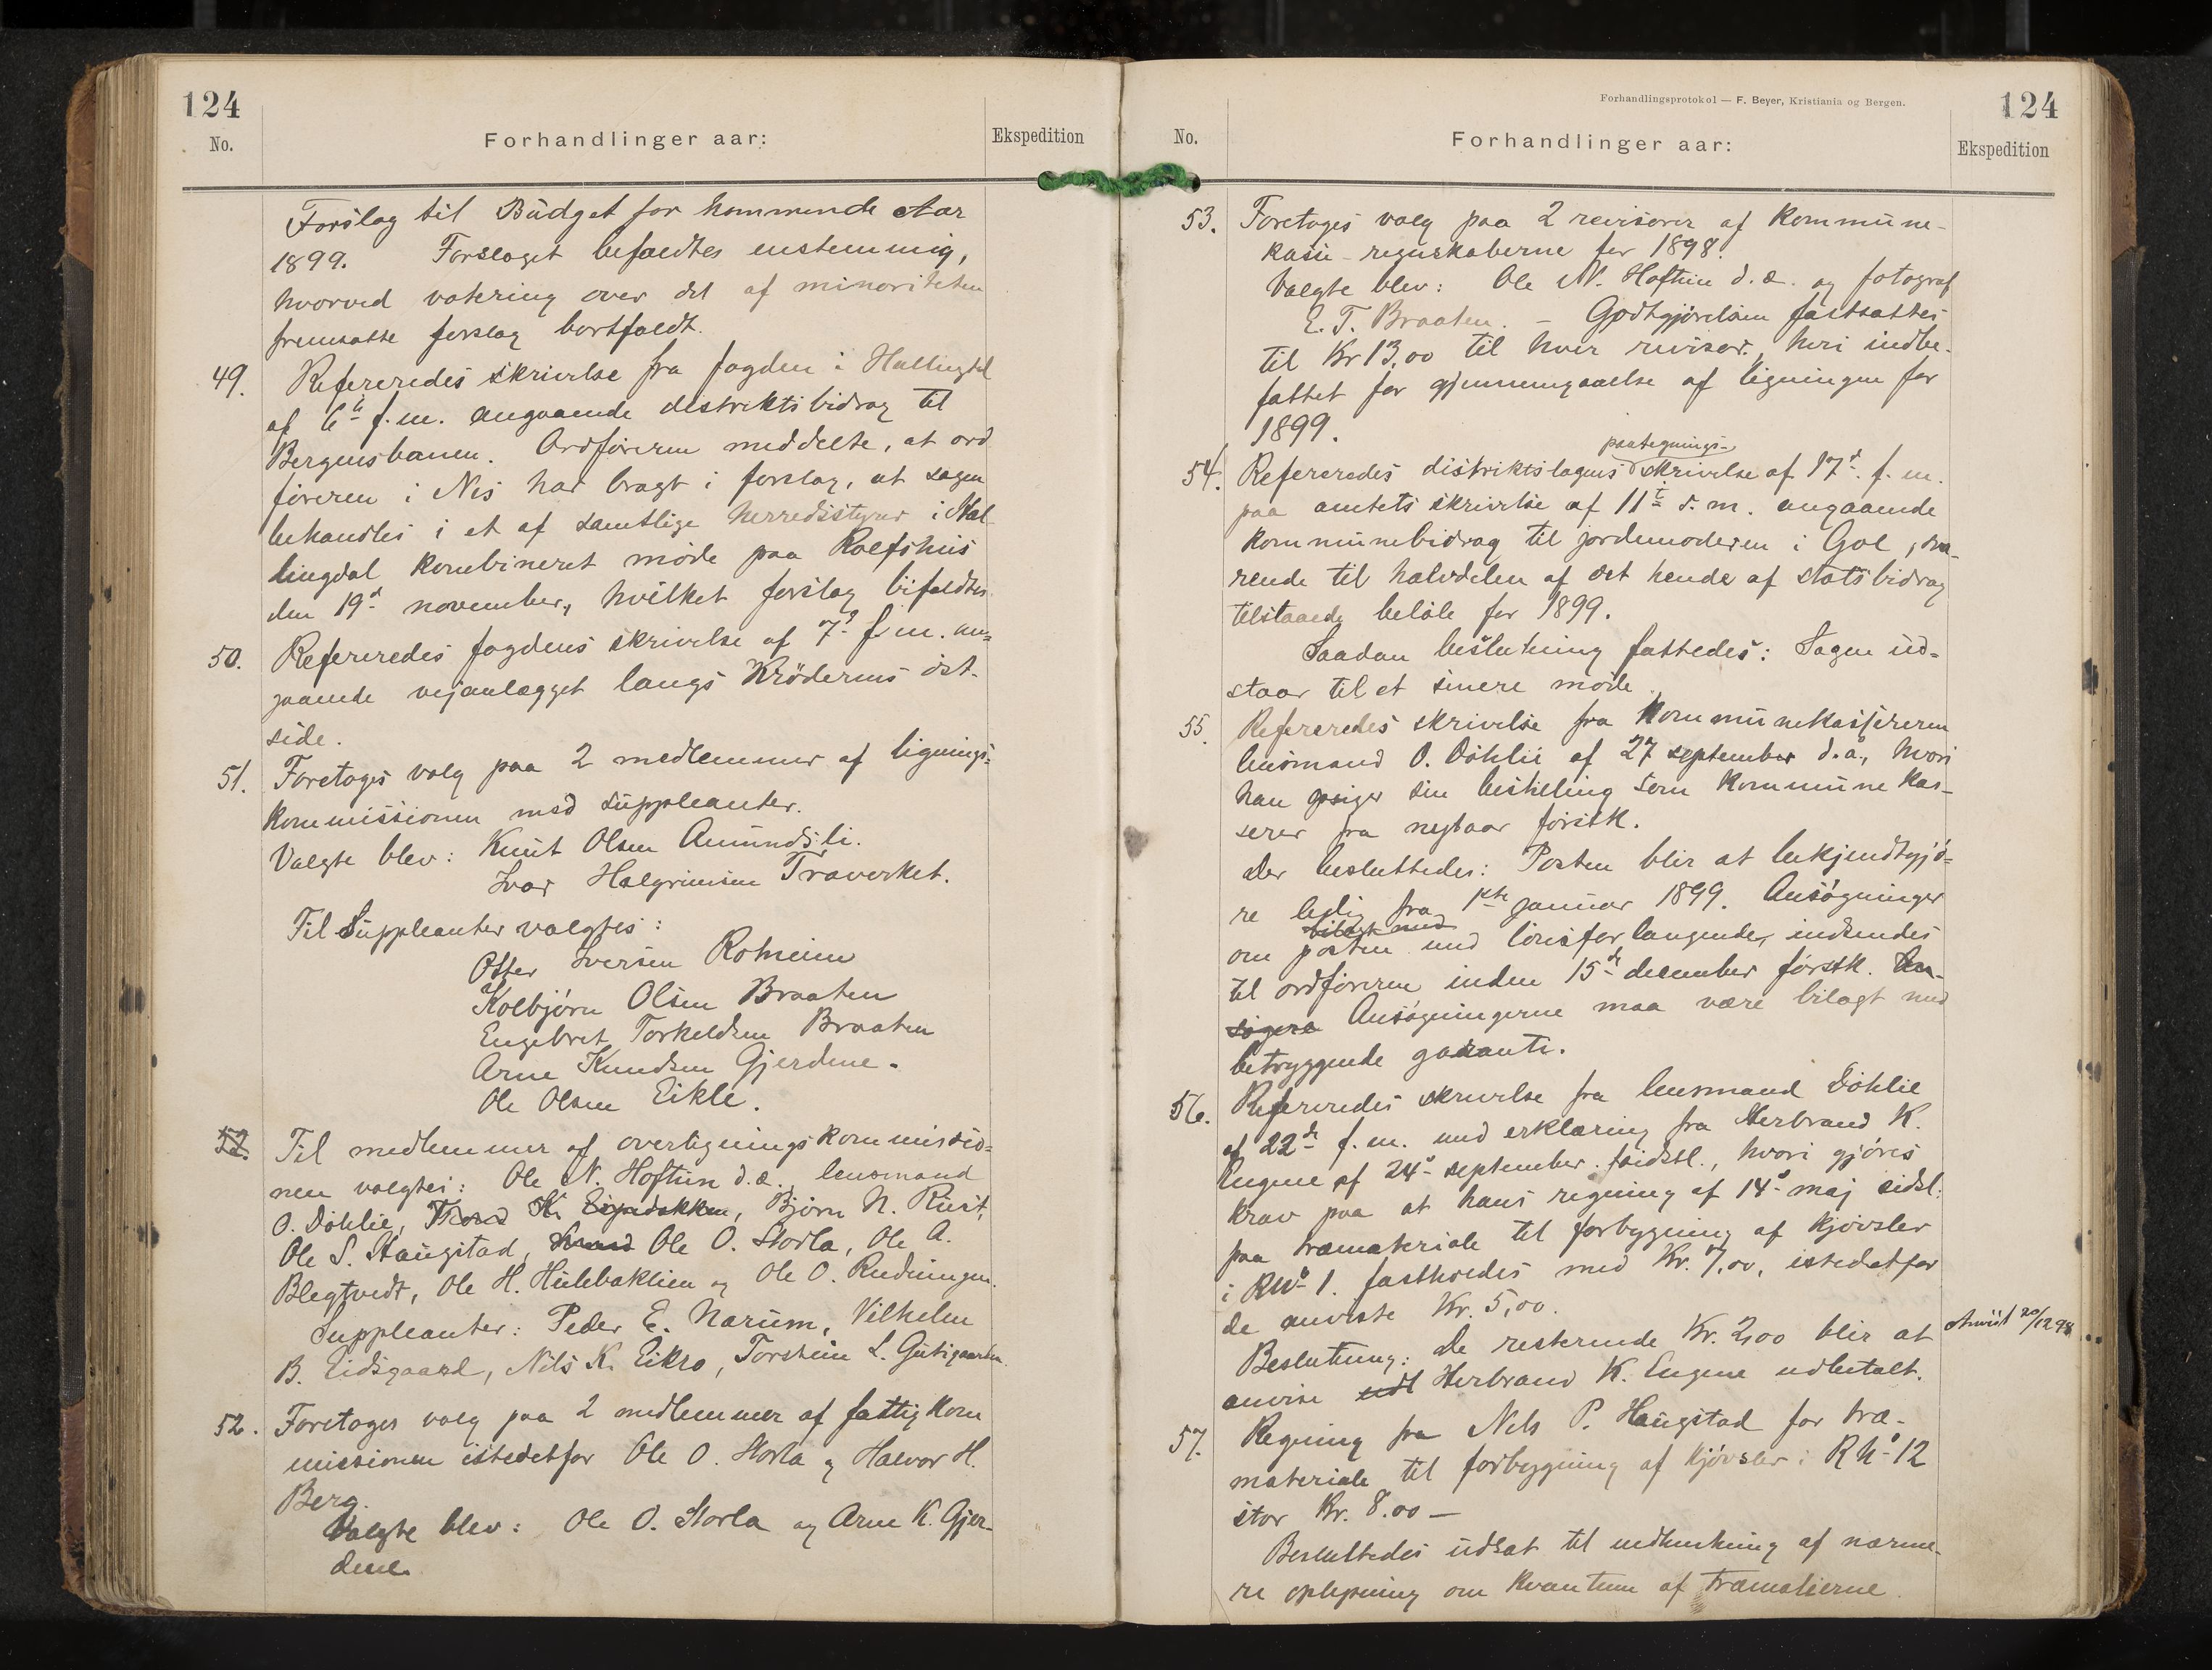 124
No.
Forhandlinger aar:
Ekspedition
Forslag til Büdget for kommende Aar
1899. Forslaget bifaldtes enstemmig,
hvorved votering over det af minoriteten
fremsatte forslag bortfaldt.
49. Refereredes skrivelse fra fogden i Hallingdal
af 6te f.m. angaaende distriktsbidrag til
Bergensbanen. Ordføreren meddelte, at ord
føreren i Nes har bragt i forslag, at sagen
behandles i et af samtlige herredsstyrer i Hal-
lingdal kombineret møde paa Rolfshus
den 19de november, hvilket forslag bifaldtes.
50. Refereredes fogdens skrivelse af 7de f.m. an-
gaaende vejanlægget langs Krøderens øst-
side.
51. Foretoges valg paa 2 medlemmer af lignings-
kommissionen med süppleanter.
Valgte blev: Knut Olsen Amundsli.
Ivar Halgrimsen Traverket.
Til Süppleanter valgtes:
Otter Iversen Rotneim
Kolbjørn Olsen Braaten
Engebret Torkeldsen Braaten
Arne Knudsen Gjerdene.
Ole Olsen Eikle.
52. Til medlemmer af overligningskommissio-
nen valgtes: Ole N. Hoftun d.æ., lensmand
O. Døhlie, Thord K. , Bjørn N. Rust,
Ole S. Haugstad, Ole O. Storla, Ole A.
Blegtvedt, Ole H. Hülebaklien og Ole O. Rudningen.
Suppleanter: Peder E. Narum, Vilhelm
B. Eidsgaard, Nils K. Eikro, Torstein L. Gutigaarden.
52. Foretoges valg paa 2 medlemmer af fattigkom
missionen istedetfor Ole O. Storla og Halvor H.
Berg.
Valgte blev: Ole O. Storla og Arne K. Gjer-
dene.
Forhandlingsprotokol — F. Beyer, Kristiania og Bergen.
124
No.
Forhandlinger aar:
Ekspedition
53. Foretoges valg paa 2 revisorer af kommune-
kasse-regnskaberne for 1898.
Valgte blev: Ole N. Hoftun d.æ. og fotograf
E. T. Braaten. – Godtgjørelsen fastsattes
til Kr 13,00 til hver revisor, heri indbe-
fattet for gjennemgaaelse af ligningen for
1899.
paategnings-
54. Refereredes distriktslægens skrivelse af 17de f.m.
paa amtets skrivelse af 11te s.m. angaaende
kommunebidrag til jordemoderen i Gol, sva-
rende til halvdelen af det hende af statsbidrag
tilstaaede beløb for 1899.
Saadan beslutning fattedes: Sagen ud-
staar til et senere møde.
55. Refereredes skrivelse fra Kommunekassereren
lensmand O. Døhlie af 27 september d.a., hvori
han opsiger sin bestilling som Kommune kas-
serer fra nytaar førstk.
Der besluttedes: Posten blir at bekjendtgjø-
re ledig fra 1ste januar 1899. Ansøgninger
bilagt med
om posten med lønsforlangende, indsendes
til ordføreren inden 15de december førstk. An-
søgere Ansøgningerne maa være bilagt med
betryggende garanti.
56. Refereredes skrivelse fra lensmand Døhlie
af 22de f.m. med erklæring fra Herbrand K.
Engene af 24de september sidstl., hvori gjøres
krav paa at hans regning af 14de maj sidstl.
paa træmateriale til forbygning af kjøvsler
i R No 1. fastholdes med Kr. 7,00, istedetfor
de anviste Kr. 5,00.
Beslutning: De resterende Kr. 2,00 blir at
anvise udt Herbrand K. Engene udbetalt.
Anvist 20/12 98
57. Regning fra Nels P. Haugstad for træ-
materiale til forbygning af kjøvsler i R No 12
stor Kr. 8.00 —
Besluttedes udsat til indhentning af nærme-
re oplysning om kvantum af